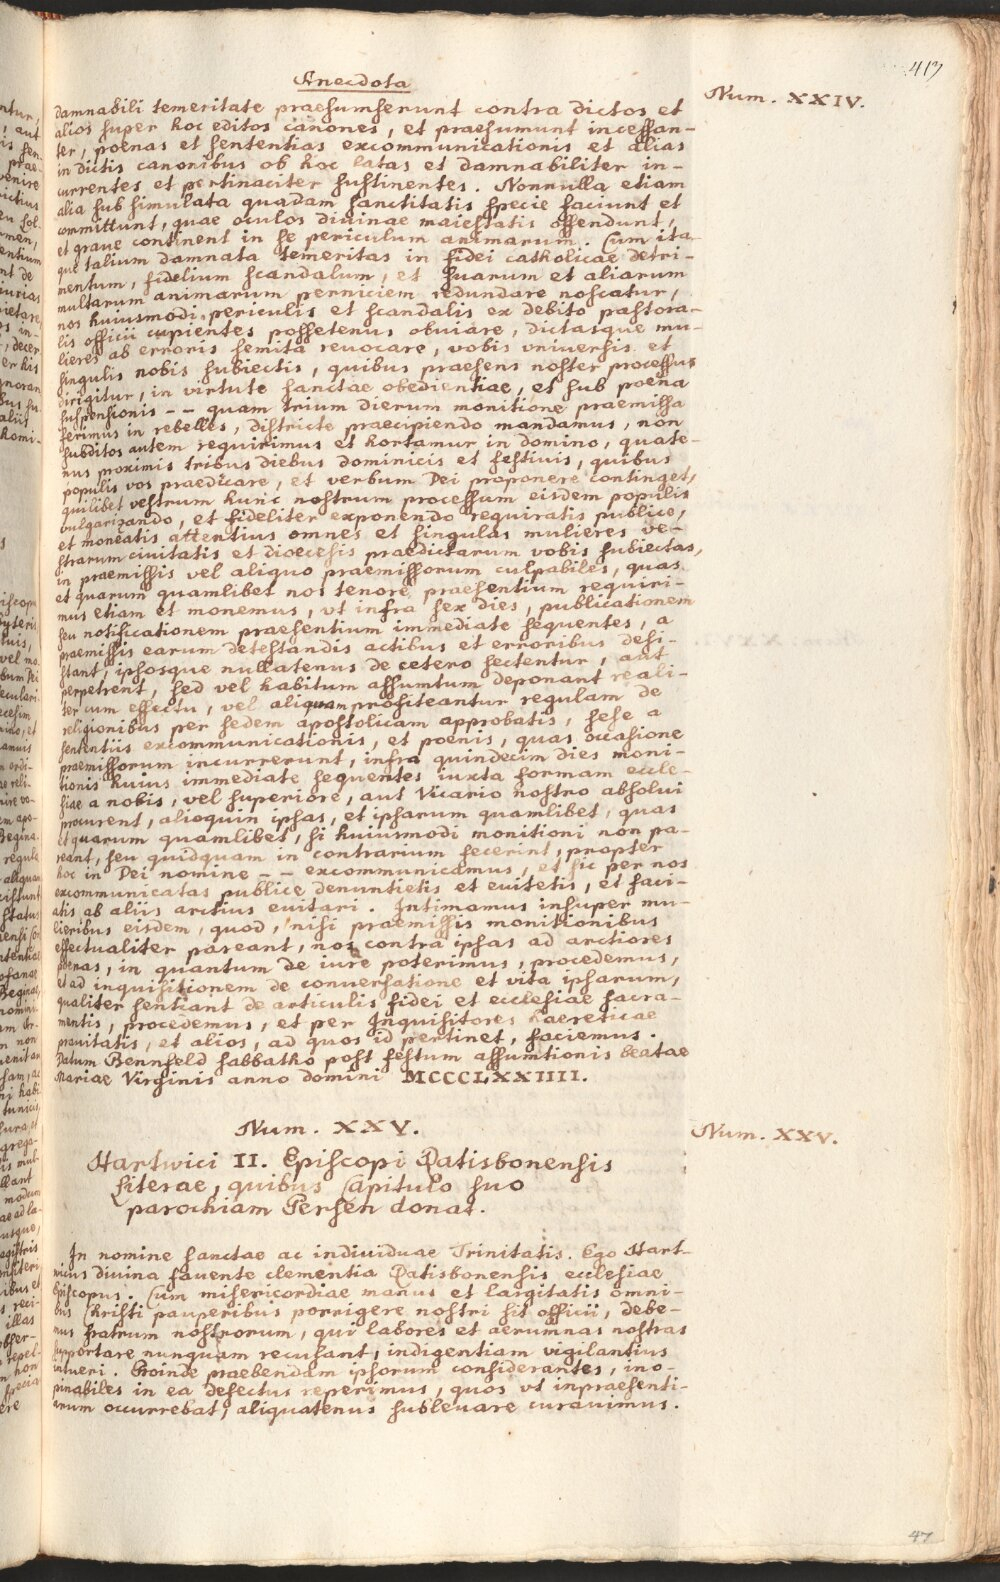 Anecdota
417
Num. XXIV.
damnabili temeritate praesumserunt contra dictos et
alios super hoc editos canones, et praesumunt incessan-
ter, poenas et sententias excommunicationis et alias
in dictis canonibus ob hoc latas et damnabiliter in-
currentes et pertinaciter sustinentes. Nonnulla etiam
alia sub simulata quadam sanctitatis specie faciunt et
committunt, quae oculos divinae maiestatis offendunt,
et graue continent in se periculum animarum. Cum ita-
que talium damnata temeritas in fidei catholicae detri-
mentum, fidelium scandalum, et suarum et aliarum
multarum animarum perniciem redundare noscatur,
nos huiusmodi periculis et scandalis ex debito pastora-
lis officii cupientes possetenus obuiare, dictasque mu-
lieres ab erroris semita reuocare, vobis vniuersis et
singulis nobis subiectis, quibus praesens noster processus
dirigitur, in virtute sanctae obedientiae, et sub poena
suspensionis -- quam trium dierum monitione praemissa
ferimus in rebelles, districte praecipiendo mandamus, non
subditos autem requirimus et hortamur in domino, quate-
nus proximis tribus diebus dominicis et festiuis, quibus
populis vos praedicare, et verbum Dei proponere continget,
quilibet vestrum hunc nostrum processum eisdem populis
vulgarizando, et fideliter exponendo requiratis publice,
et moneatis attentius omnes et singulas mulieres ve-
strarum ciuitatis et dioecesis praedictarum vobis subiectas,
in praemissis vel aliquo praemissorum culpabiles, quas
et quarum quamlibet nos tenore praesentium requiri-
mus etiam et monemus, vt infra sex dies, publicationem
seu notificationem praesentium immediate sequentes, a
praemissis earum detestandis actibus et erroribus desi-
stant, ipsosque nullatenus de cetero sectentur, aut
perpetrent, sed vel habitum assumtum deponant reali-
ter cum effectu, vel aliquam profiteantur regulam de
religionibus per sedem apostolicam approbatis, sese a
sententiis excommunicationis, et poenis, quas occasione
praemissorum incurrerunt, infra quindecim dies moni-
tionis huius immediate sequentes iuxta formam eccle-
siae a nobis, vel superiore, aut Vicario nostro absolui
procurent, alioquin ipsas, et ipsarum quamlibet, quas
et quarum quamlibet, si huiusmodi monitioni non pa-
reant, seu quidquam in contrarium fecerint, propter
hoc in Dei nomine -- excommunicamus, et sic per nos
excommunicatas publice denuntietis et euitetis, et faci-
atis ab aliis arctius euitari. Intimamus insuper mu-
lieribus eisdem, quod, nisi praemissis monitionibus
effectualiter pareant, nos contra ipsas ad arctiores
poenas, in quantum de iure poterimus, procedemus,
et ad inquisitionem de conuersatione et vita ipsarum,
qualiter sentiant de articulis fidei et ecclesiae sacra-
mentis, procedemus, et per Inquisitores haereticae
prauitatis, et alios, ad quos id pertinet, faciemus.
Datum Bennfeld sabbatho post festum assumtionis beatae
Mariae Virginis anno domini MCCCLXXIIII.
Num. XXV.
Num. XXV.
Hartwici II. Episcopi Ratisbonensis
literae, quibus Capitulo suo
parochiam Persen donat.
In nomine sanctae ac individuae Trinitatis. Ego Hart-
wicus divina fauente clementia Ratisbonensis ecclesiae
Episcopus. Cum misericordiae manus et largitatis omni-
bus Christi pauperibus porrigere nostri sit officii, debe-
mus fratrum nostrorum, qui labores et aerumnas nostras
supportare nunquam recusant, indigentiam vigilantius
intueri. Proinde praebendam ipsorum considerantes, ino-
pinabiles in ea defectus reperimus, quos vt inpraesenti-
arum occurrebat, aliquatenus subleuare curauimus.
47